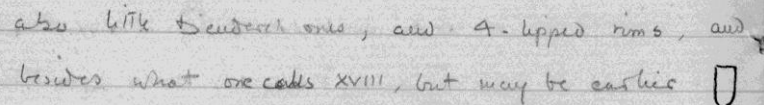 also little Denderah ones, and 4-lipped rims, and
besides what one calls XVIII, but may be earlier